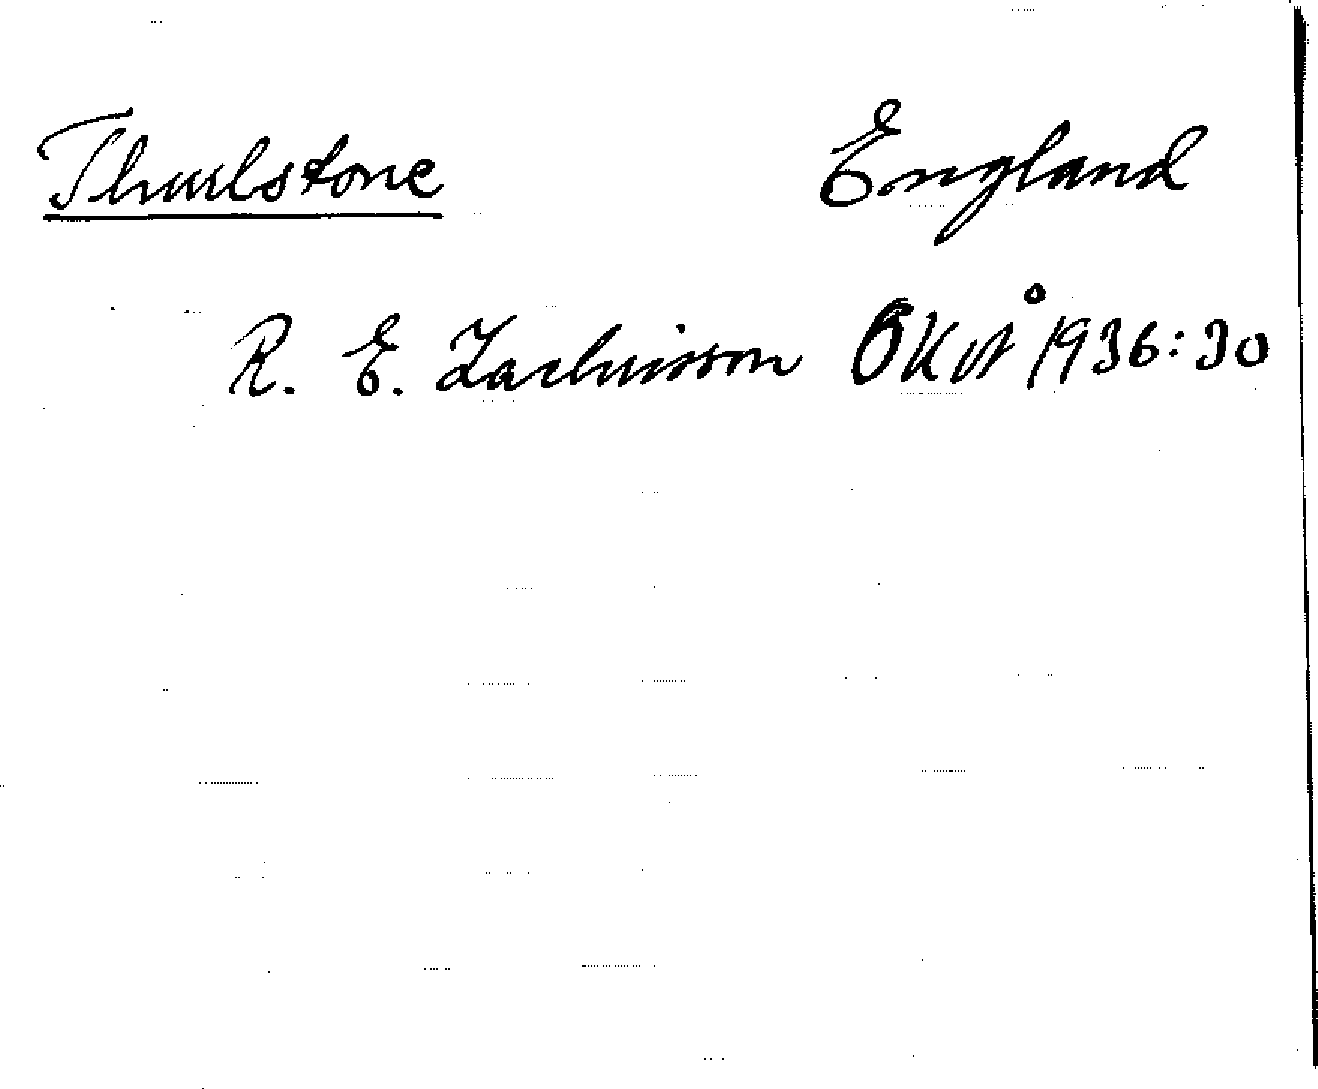 Thurlstone England
R. E. Zachrisson 1936:30